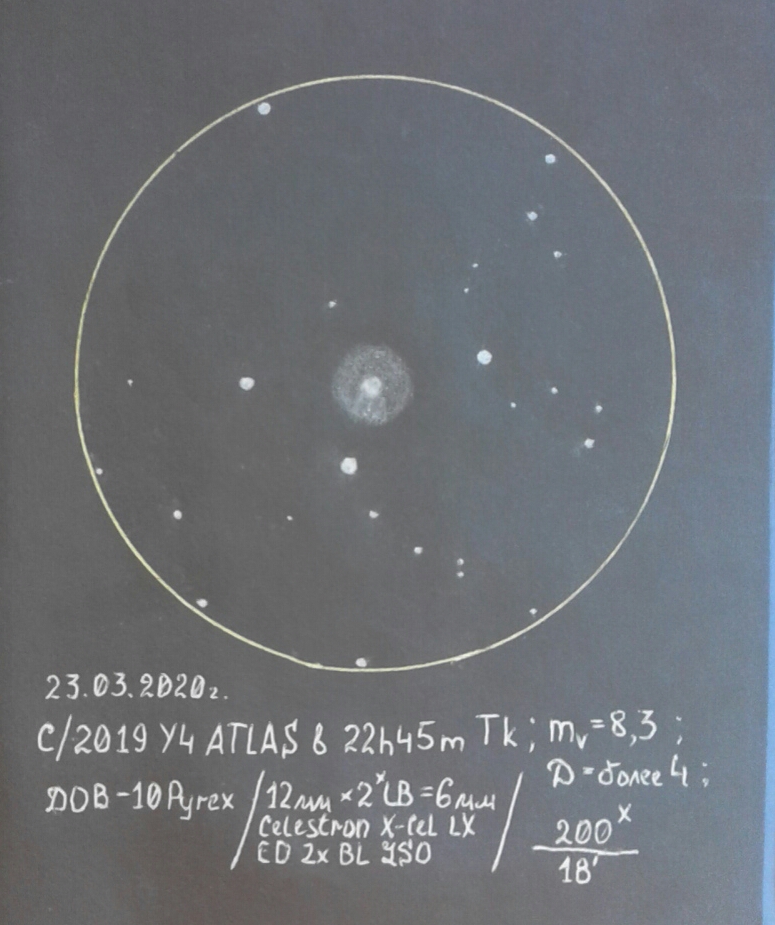 23.03.2020г.
C/2019 Y4 ATLAS в 22h45m Tk; mᵥ=8,3;
D=более 4;
DOB-10 Pyrex / 12мм × 2ˣ LB = 6мм /
Celestron X-Cel LX
ED 2x BL GSO
200ˣ
18'